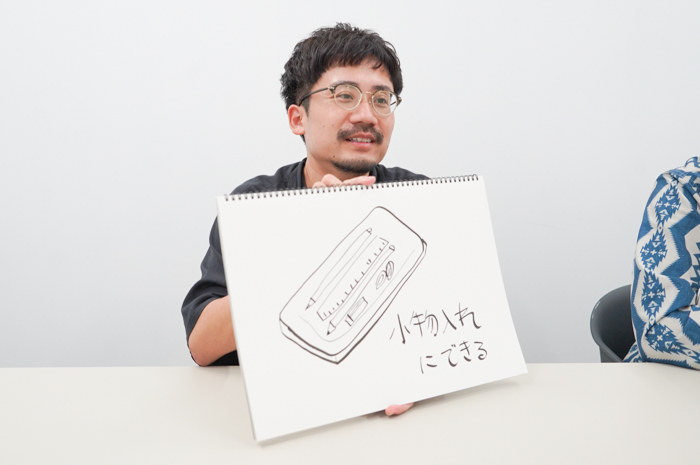 小物入れ
にできる